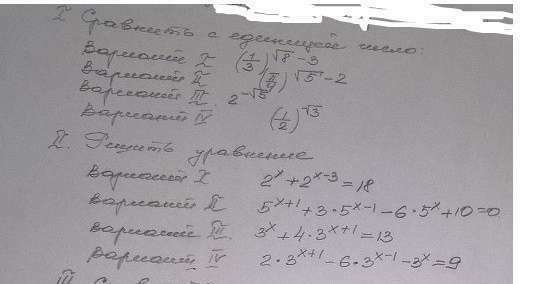 I Сравнить с единицей число:
Вариант I (1/3)^(√8-3)
Вариант II (π/4)^(√5-2)
Вариант III 2^(-√5)
Вариант IV (1/2)^(√3)
II. Решить уравнение
Вариант I 2^x + 2^(x-3) = 18
Вариант II 5^(x+1) + 3·5^(x-1) - 6·5^x + 10 = 0
Вариант III. 3^x + 4·3^(x+1) = 13
Вариант IV 2·3^(x+1) - 6·3^(x-1) - 3^x = 9
III